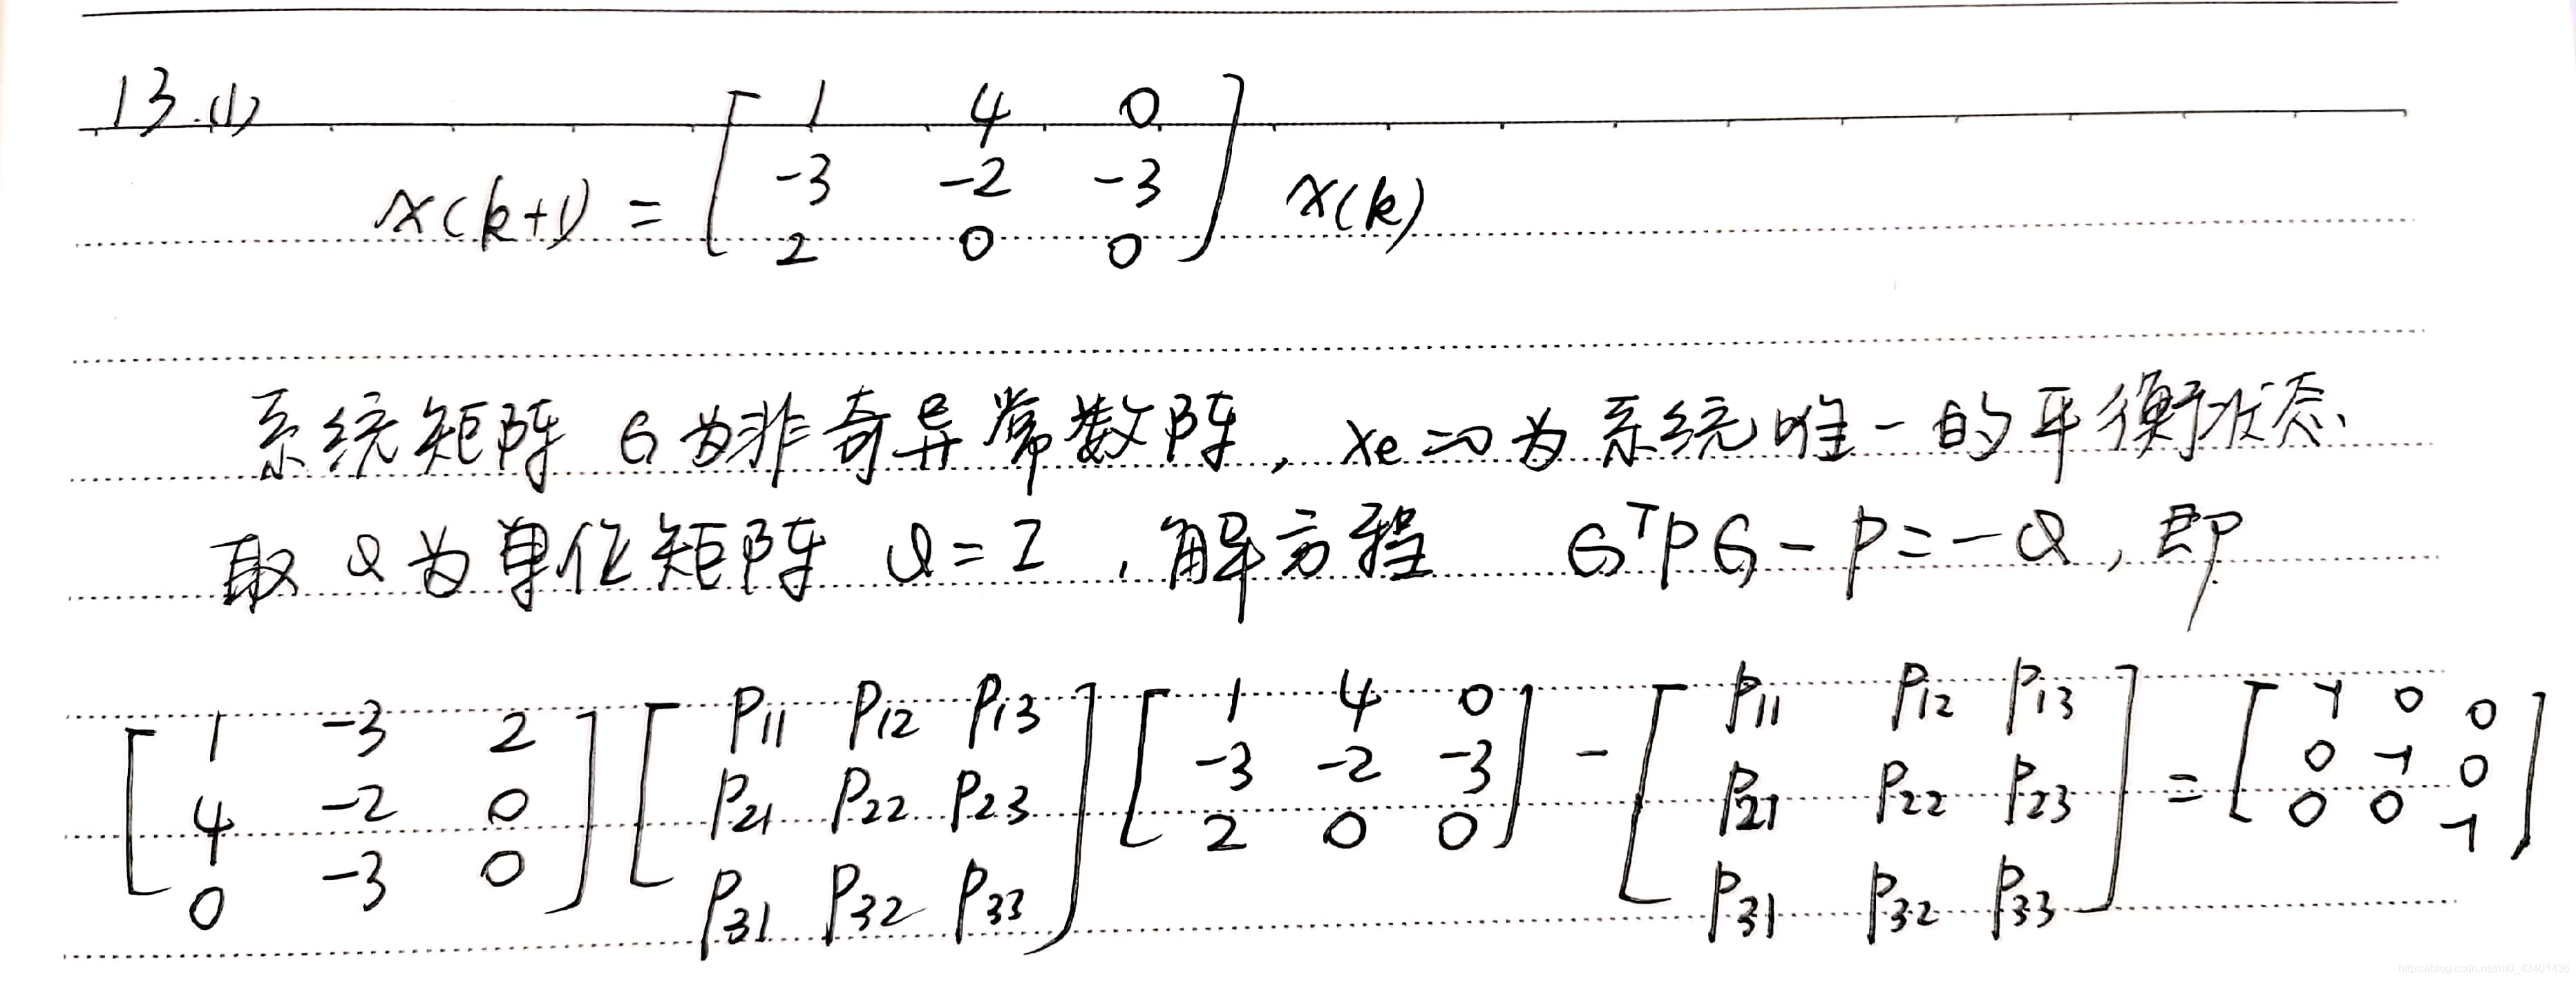 13.(1)
x(k+1) = [ 1 4 0 ; -3 -2 -3 ; 2 0 0 ] x(k)
系统矩阵 G为非奇异常数阵, xe=0为系统唯一的平衡状态、
取 Q为单位矩阵 Q=I , 解方程 G^T P G - P = -Q, 即
[ 1 -3 2 ; 4 -2 0 ; 0 -3 0 ] [ P11 P12 P13 ; P21 P22 P23 ; P31 P32 P33 ] [ 1 4 0 ; -3 -2 -3 ; 2 0 0 ] - [ P11 P12 P13 ; P21 P22 P23 ; P31 P32 P33 ] = [ -1 0 0 ; 0 -1 0 ; 0 0 -1 ]
https://blog.csdn.net/m0_43401436